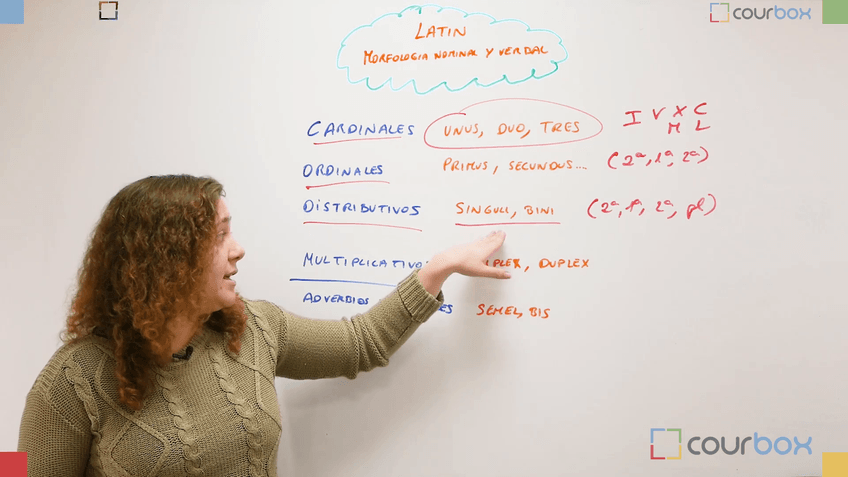 courbox
LATIN
MORFOLOGIA NOMINAL Y VERBAL
CARDINALES UNUS, DUO, TRES I V X C
M L
ORDINALES PRIMUS, SECUNDUS.... (2ª, 1ª, 2ª)
DISTRIBUTIVOS SINGULI, BINI (2ª, 1ª, 2ª, pl)
MULTIPLICATIVO DUPLEX
ADVERBIOS SEMEL, BIS
courbox